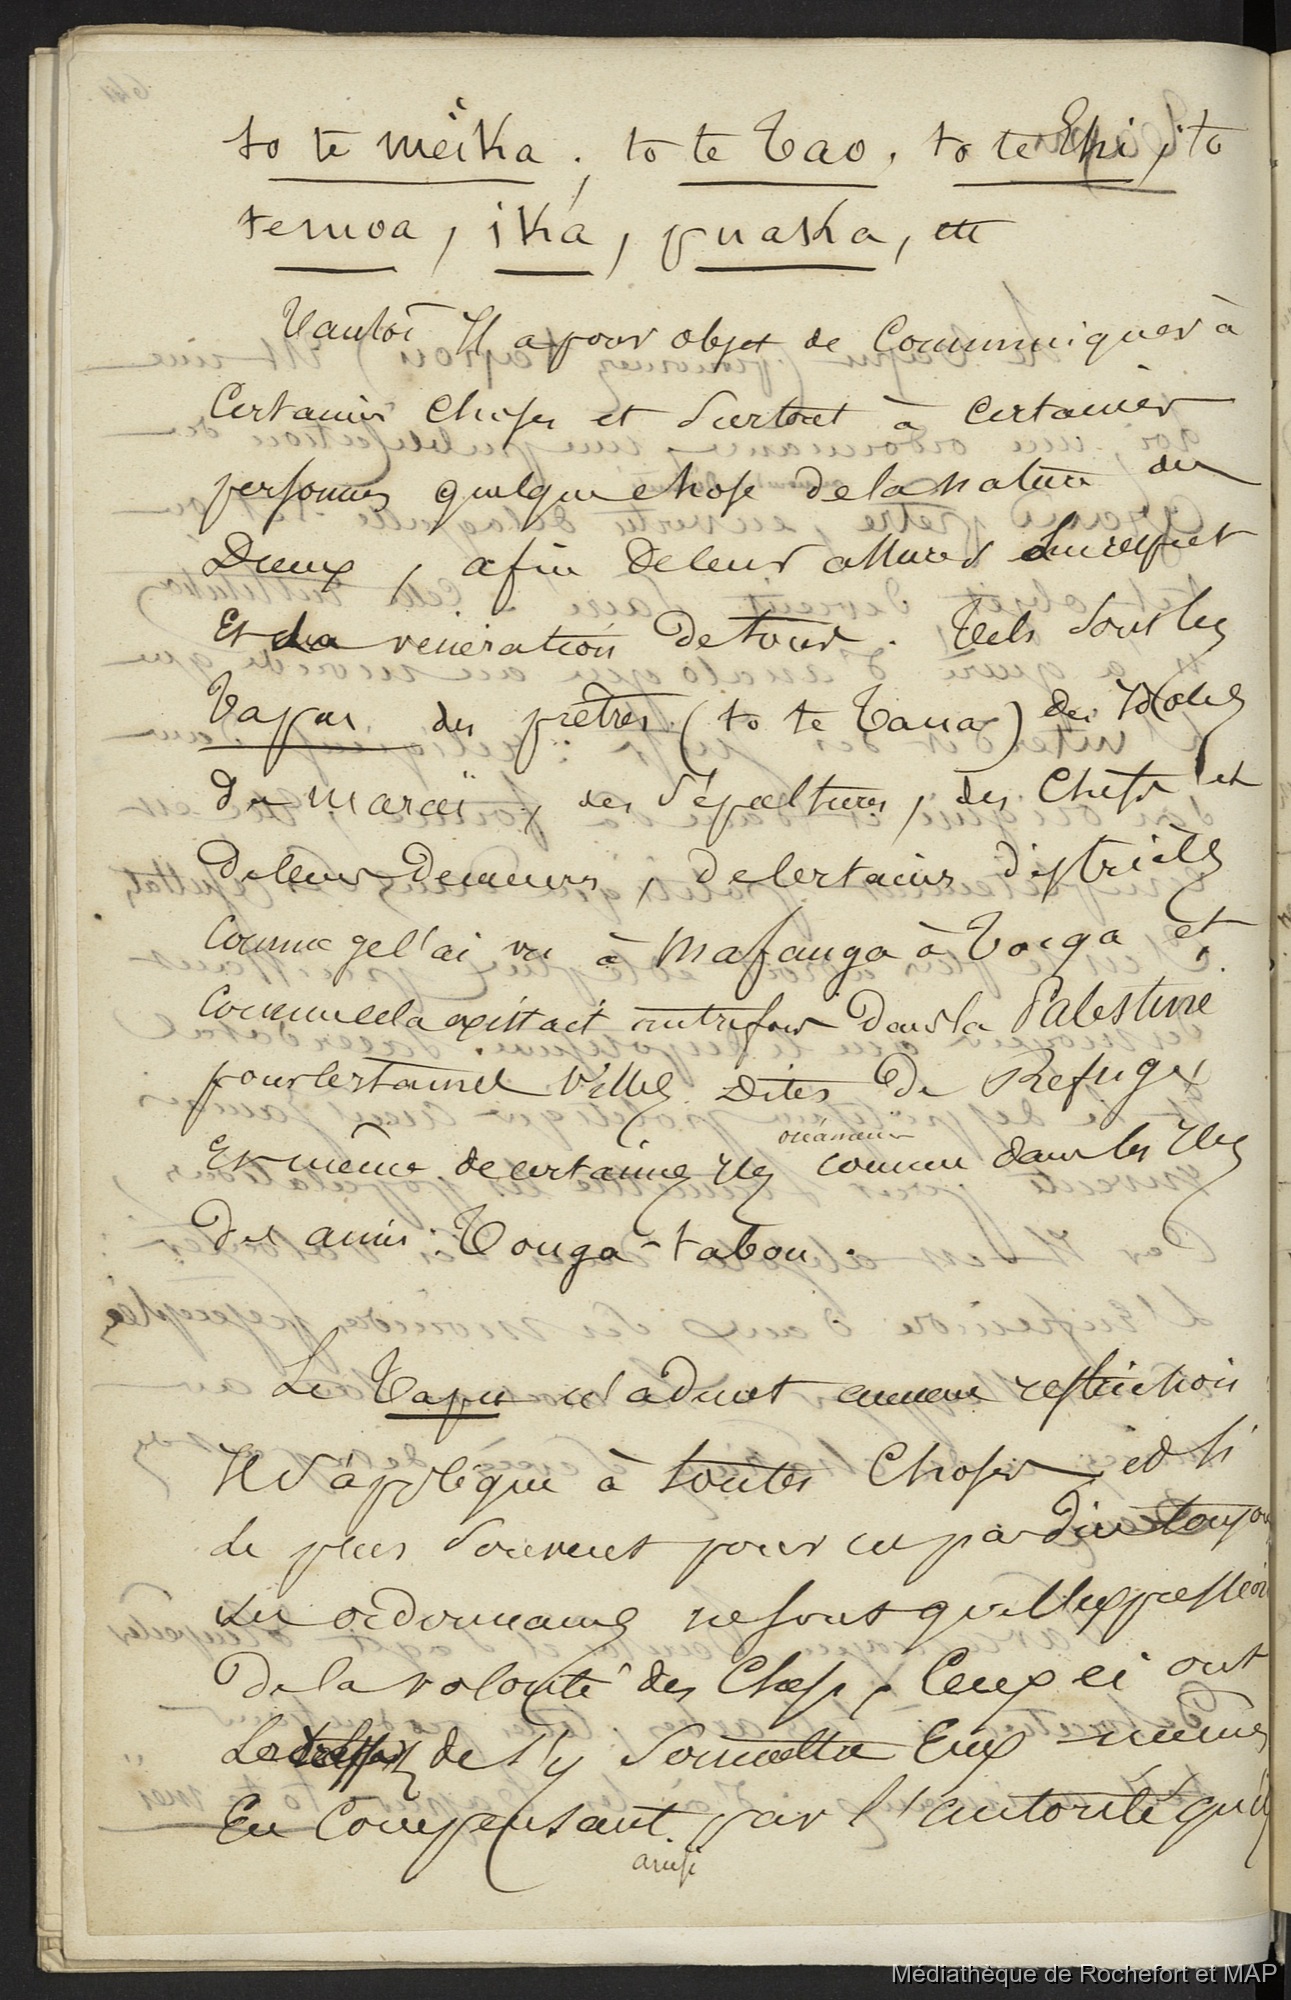 to te meïka, to te Tao, to te Ehi, to
temoa, ika, puaka, etc
Tantôt Il a pour objet de Communiquer à
Certaines Choses et Surtout à Certaines
personnes quelque chose de la nature des
Dieux, afin de leur assurer le respect
Et la vénération de tous. Tels sont les
Tapus des prêtres (to te Taua) des Idoles
de maraï, des Sépultures, des Chefs et
de leurs demeures, de Certains districts
Comme je l'ai vu à Mafanga à Tonga et
Comme cela existait autrefois dans la Palestine
pour certaines Villes dites de Refuge,
Et même de certaines Iles océaniennes comme dans les Iles
des amis. Tonga-tabou.
Le Tapu n'admet aucune restriction
Il s'applique à toutes Choses, et si
le plus souvent pour ne pas dire toujours
ses ordonnances ne sont que l'expression
de la volonté des Chefs, Ceux ci ont
de s'y soumettre Eux-mêmes
En Compensant par l'autorité qu'ils
ainsi
Médiathèque de Rochefort et MAP